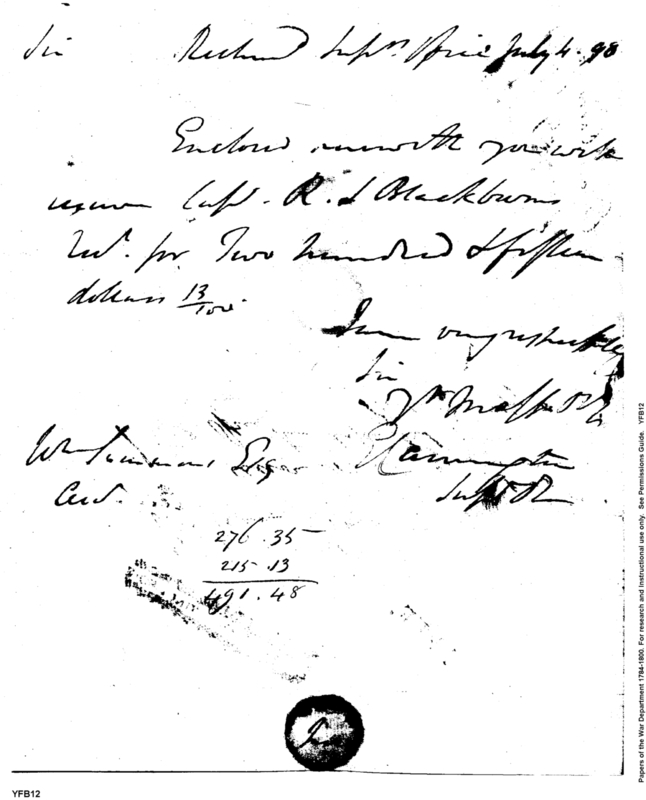 Sir Richmd Supr. Office July 4. 98
Enclosed you will
receive Capt. R. S Blackburns
Rect. for Two hundred & fifteen
dollars 13/100.
I am very respectfully
Sir
Yr. Mo Obt St
Wm Simmons Esq E Carrington
Acct. Supr
276.35
215.13
491.48
YFB12
Papers of the War Department 1784-1800. For research and Instructional use only. See Permissions Guide. YFB12